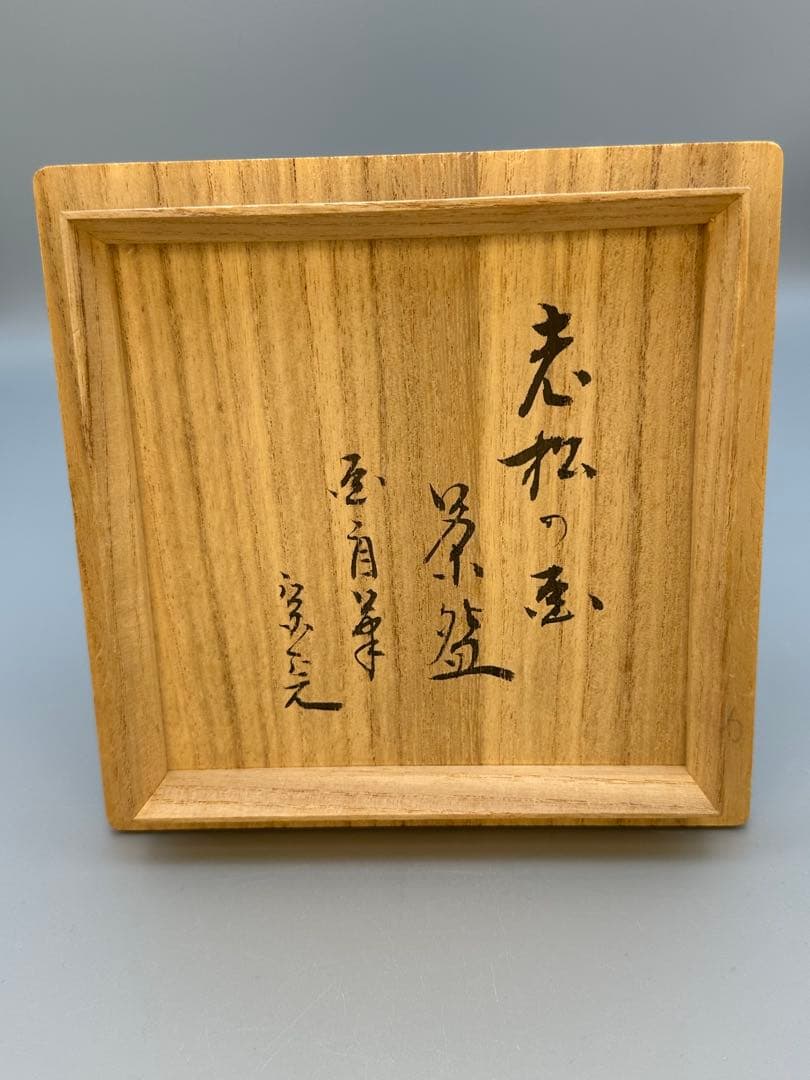 老松の画
茶盌
画自筆
宗完